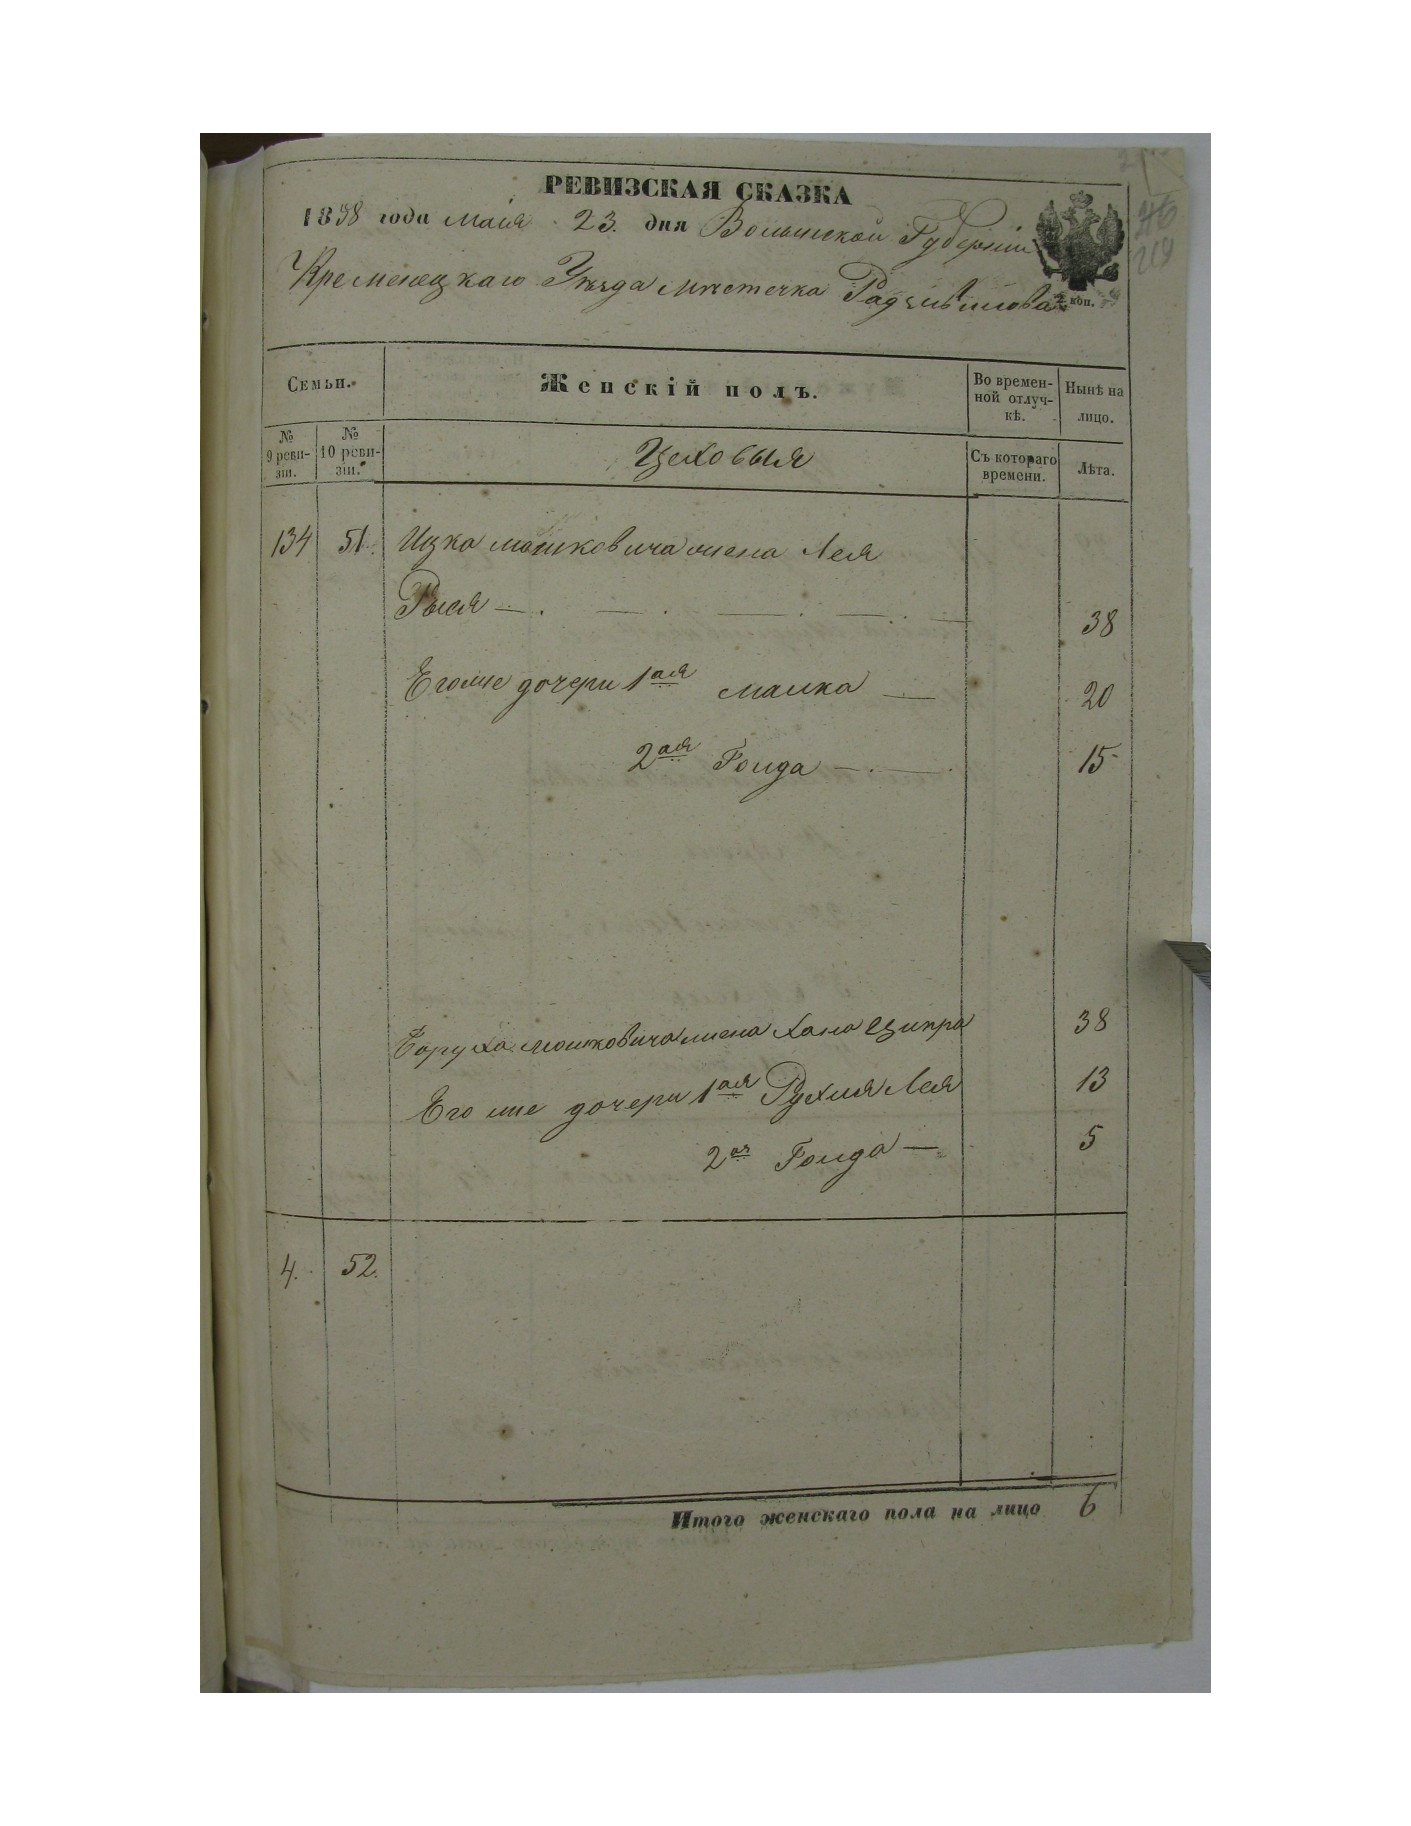 РЕВИЗСКАЯ СКАЗКА
1858 года маія 23. дня Волынской Губерніи
Кременецкаго Уѣзда мѣстечка Радзивилова
2 коп.
Семьи. Женскій полъ. Во времен-ной отлуч-кѣ. Нынѣ на лицо.
№ 9 реви-зіи. № 10 реви-зіи. Цеховыя Съ котораго времени. Лѣта.
134 51. Ицка мошковича жена Лея
Рыся — . — . — . — . . — 38
Егоже дочери 1ая малка — 20
2ая Голда — . — . 15
Боруха мошковича жена Хана Ципра 38
Его же дочери 1ая Рухля Лея 13
2ая Голда — 5
4. 52.
Итого женскаго пола на лицо 6